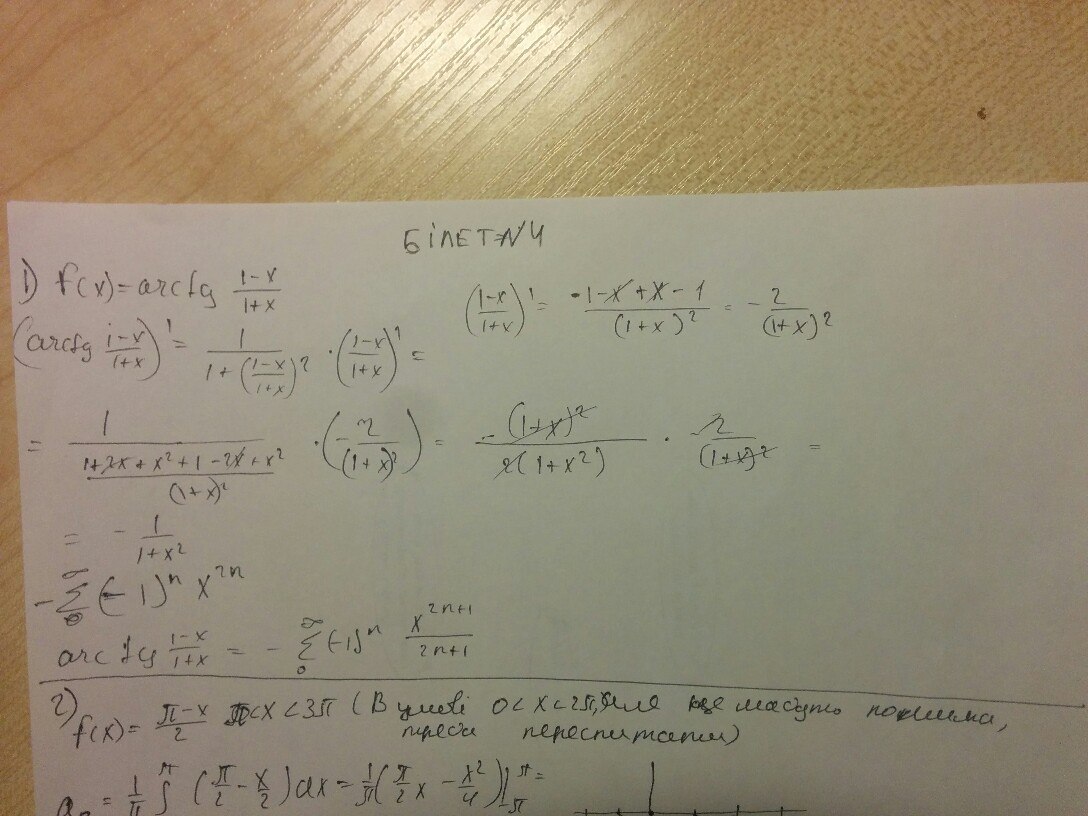 БІЛЕТ №4
1) f(x) = arctg (1-x)/(1+x)
((1-x)/(1+x))' = (-1-x+x-1)/(1+x)² = -2/(1+x)²
(arctg (1-x)/(1+x))' = 1/(1+((1-x)/(1+x))²) · ((1-x)/(1+x))' =
= 1/((1+2x+x²+1-2x+x²)/(1+x)²) · (-2/(1+x)²) = -(1+x)²/(2(1+x²)) · 2/(1+x)² =
= -1/(1+x²)
-∑₀^∞ (-1)ⁿ x²ⁿ
arctg (1-x)/(1+x) = -∑₀^∞ (-1)ⁿ x²ⁿ⁺¹/(2n+1)
2) f(x) = (π-x)/2 π<x<3π (В умові 0<x<2π, але це мабуть помилка,
треба переспитати)
a₀ = 1/π ∫^π (π/2 - x/2)dx = 1/π(π/2 x - x²/4)|₋π^π =